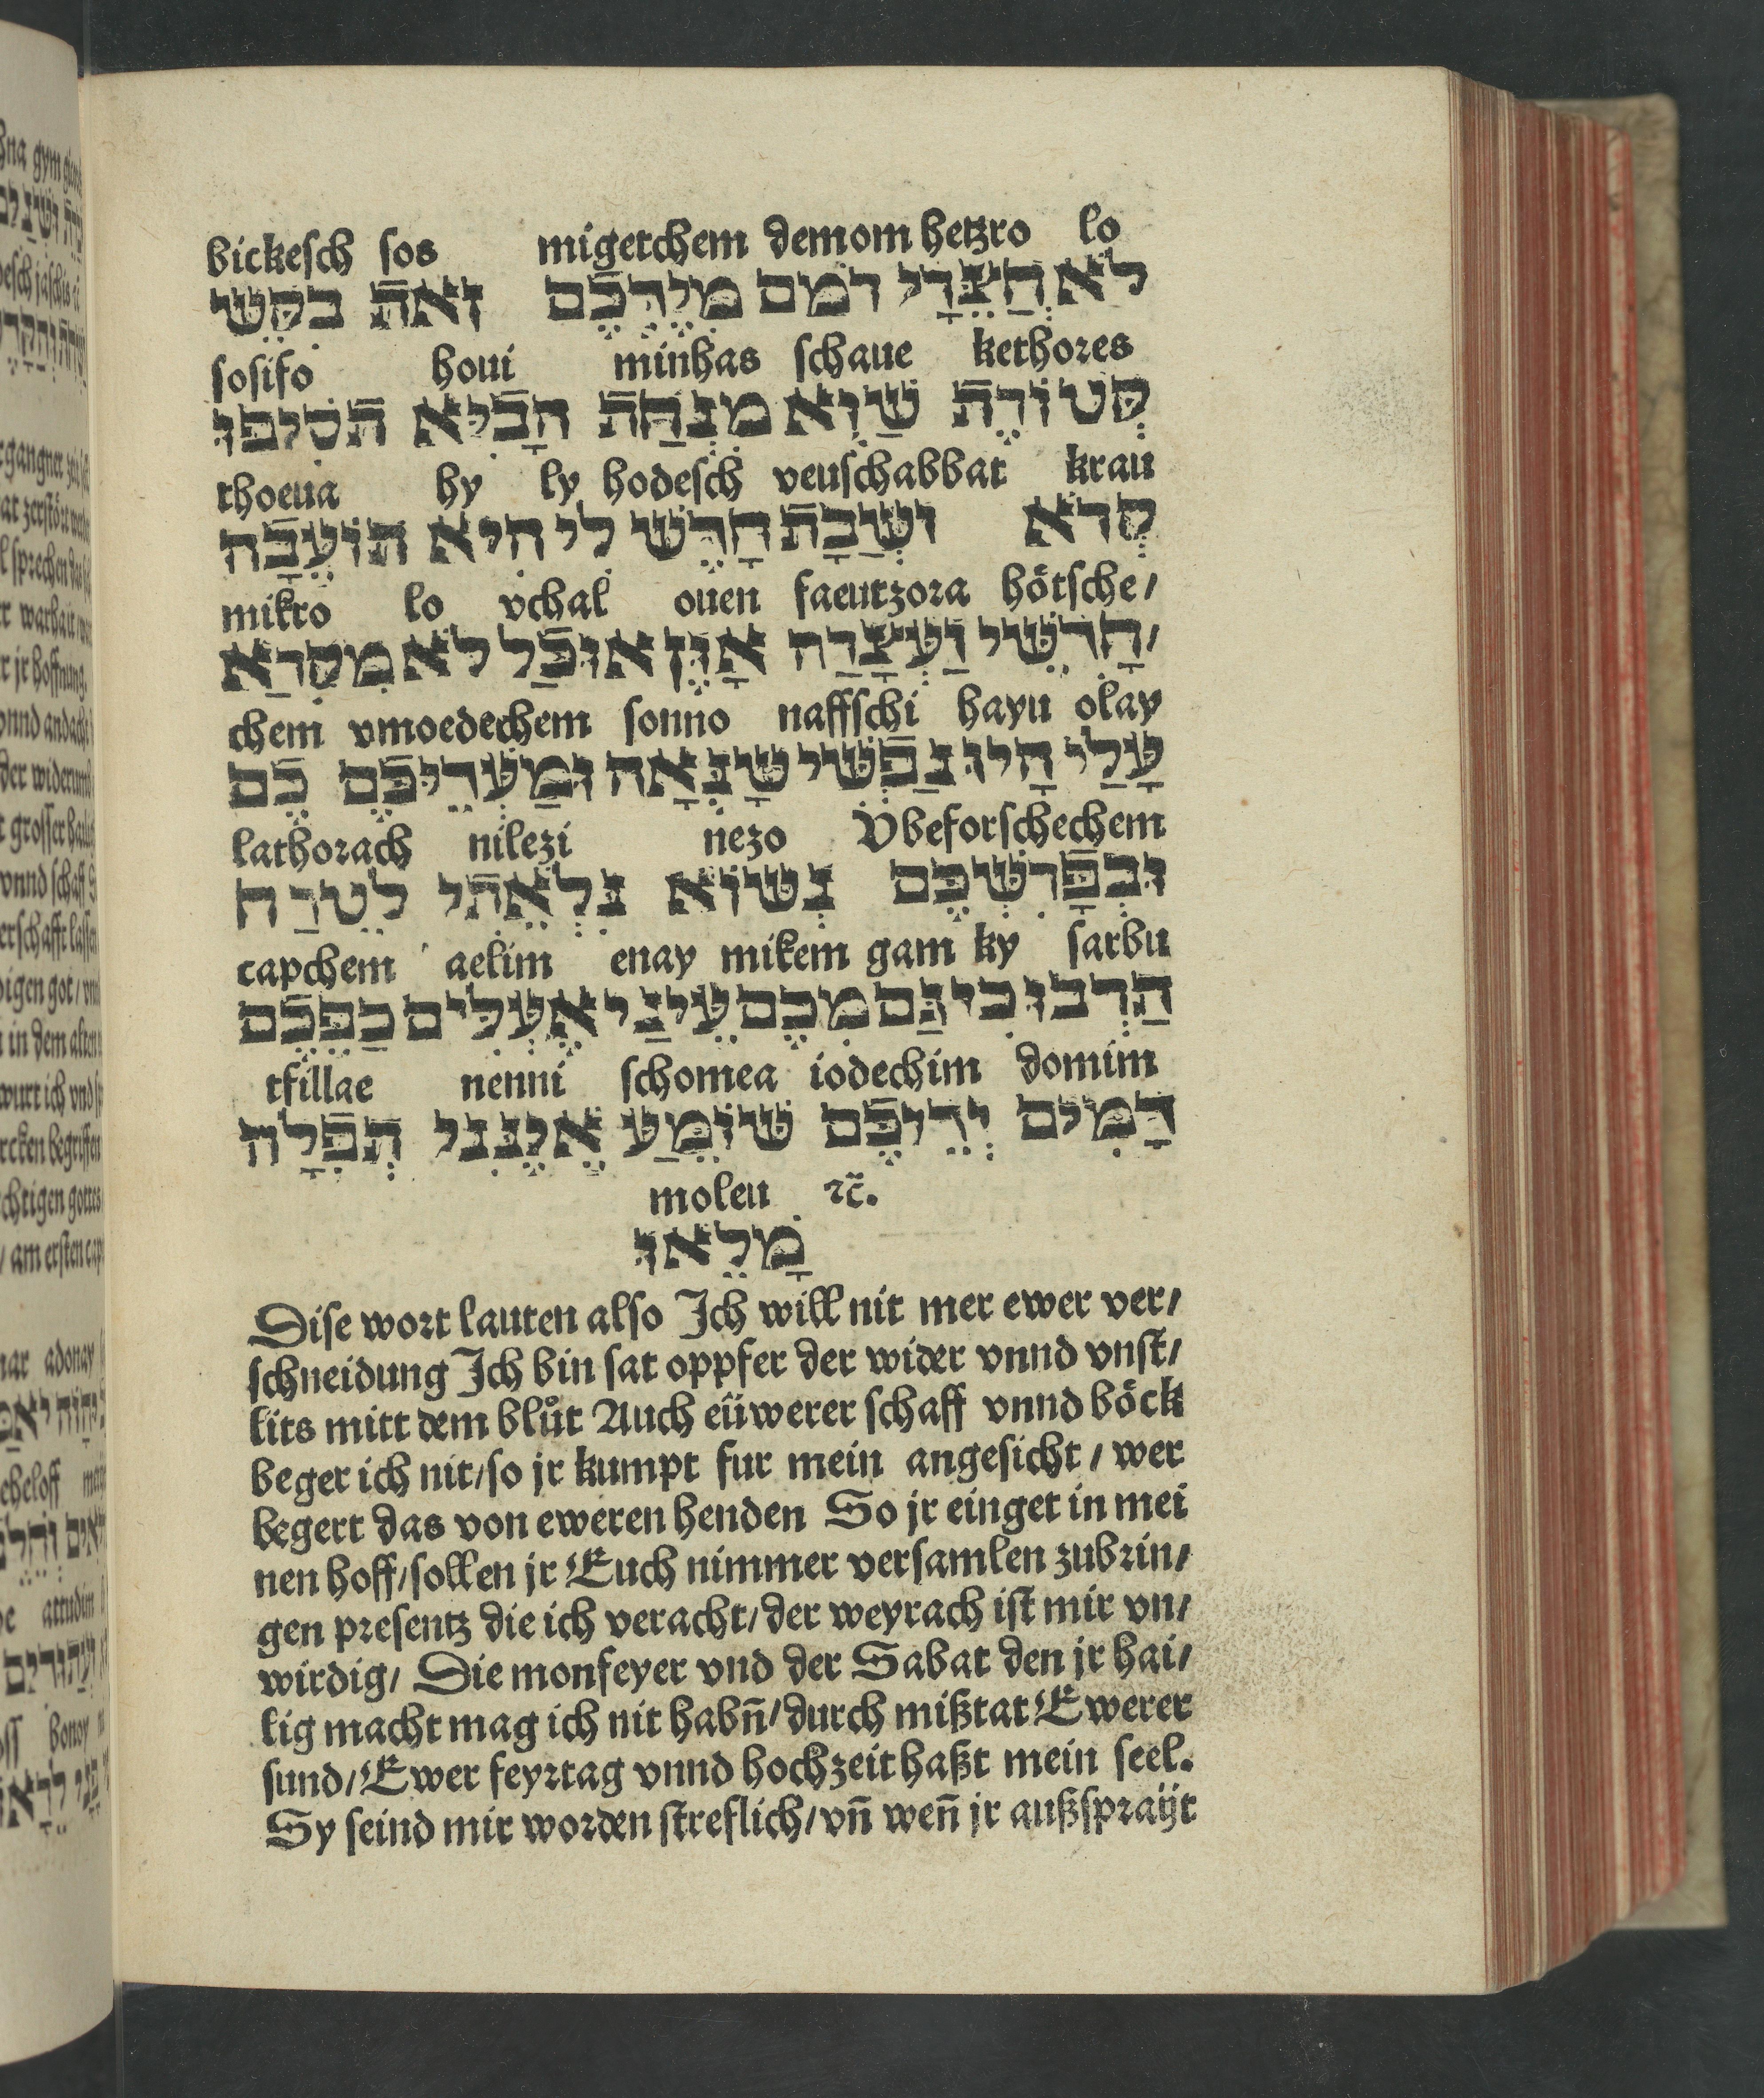 bickesch sos migetchem demom hetzro lo
לֹא חֲצֵּרָי דמם מִיֶרְכֶם זאת בִקֵשי
sosifo houi minhas schaue kethores
קְטוֹרֶת שַוְא מִנְחַת הָבִיא תֹסִיפוּ
thoeua hy ly hodesch veuschabbat krau
קְרֹא וְשַבָת חָדֶש לִי הִיא תּוֹעֵבָה
mikro lo vchal ouen faeutzora hötsche/
חָדְשֵי וַעְצָרַה אָוֶן אוּכַל לֹא מִקְרַא/
chem vmoedechem sonno naffschi hayu olay
עָלַי הָיוּ נַפְשִי שָנְאָה וּמַעְדֵיכֶם כֶם
lathorach nilezi nezo Vbeforschechem
וּבְפָרִשְכֶם נְשוֹא נִלְאֵתִי לִטֵרַח
capchem aelim enay mikem gam ky sarbu
תַרְבוּ כִי גַם מִכֶם עֵינַי אֶעְלִים כַפֵכֶם
tfillae nenni schomea iodechim domim
דָמִים יְדֵיכֶם שוֹמֵעַ אֵינֶנִי תְפִלָה
moleu ꝛc̃.
מָלֵאוּ
Dise wort lauten also Jch will nit mer ewer ver/
schneidung Jch bin sat oppfer der wider vnnd vnst/
lits mitt dem blůt Auch eüwerer schaff vnnd böck
beger ich nit/so jr kumpt fur mein angesicht/ wer
begert das von eweren henden So jr einget in mei
nen hoff/sollen jr Euch nimmer versamlen zubrin/
gen presentz die ich veracht/der weyrach ist mir vn/
wirdig/ Die monfeyer vnd der Sabat den jr hai/
lig macht mag ich nit habn̄/durch mißtat Ewerer
sund/Ewer feyrtag vnnd hochzeit haßt mein seel.
Sy seind mir worden streflich/vn̄ wen̄ jr außsprayt